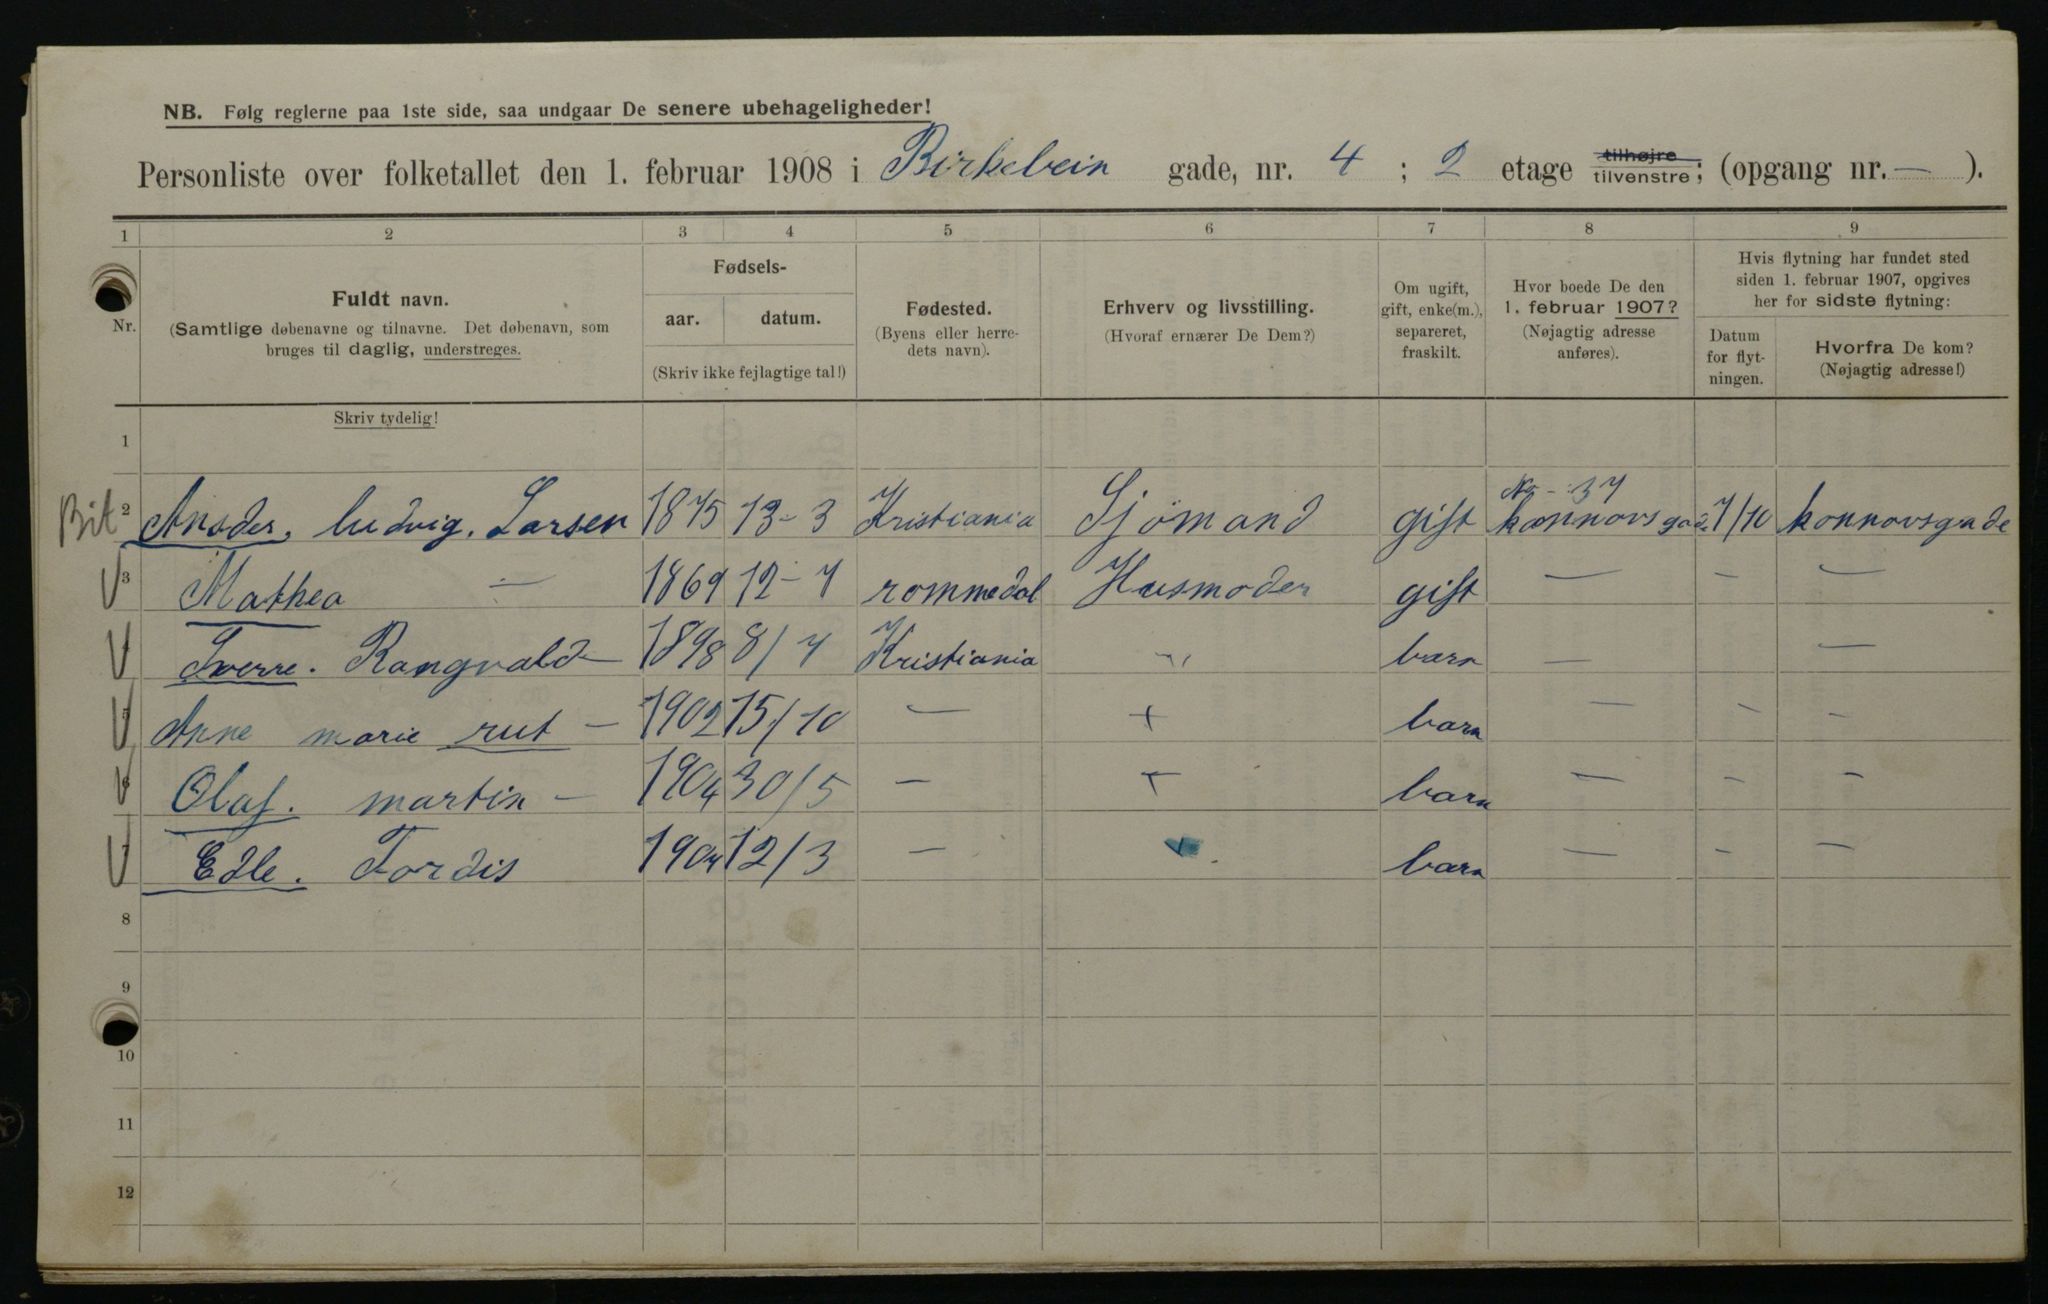 NB. Følg reglerne paa 1ste side, saa undgaar De senere ubehageligheder!
Personliste over folketallet den 1. februar 1908 i Birkebein gade, nr. 4 ; 2 etage tilhøjre tilvenstre; (opgang nr. — ).
1 2 3 4 5 6 7 8 9
Nr.
Fuldt navn.
(Samtlige døbenavne og tilnavne. Det døbenavn, som
bruges til daglig, understreges.
Fødsels-
aar. datum.
(Skriv ikke fejlagtige tal!)
Fødested.
(Byens eller herre-
dets navn).
Erhverv og livsstilling.
(Hvoraf ernærer De Dem?)
Om ugift,
gift, enke(m.),
separeret,
fraskilt.
Hvor boede De den
1. februar 1907?
(Nøjagtig adresse
anføres).
Hvis flytning har fundet sted
siden 1. februar 1907, opgives
her for sidste flytning:
Datum
for flyt-
ningen.
Hvorfra De kom?
(Nøjagtig adresse!)
Skriv tydelig!
1
No - 37
Bit 2 Ansder. ludvig. Larsen 1875 13-3 Kristiania Sjömand gift konnovsgade 7/10 konnovsgade
3 Mathea — 1869 12-7 rommedal Husmoder gift — — —
4 Sverre. Rangvald 1898 8/7 Kristiania " barn — —
5 Anne marie rut — 1902 15/10 — + barn — — —
6 Olaf. martin — 1904 30/5 — + barn — — —
7 Edle. Tordis 190 12/3 — + barn — — —
8
9
10
11
12